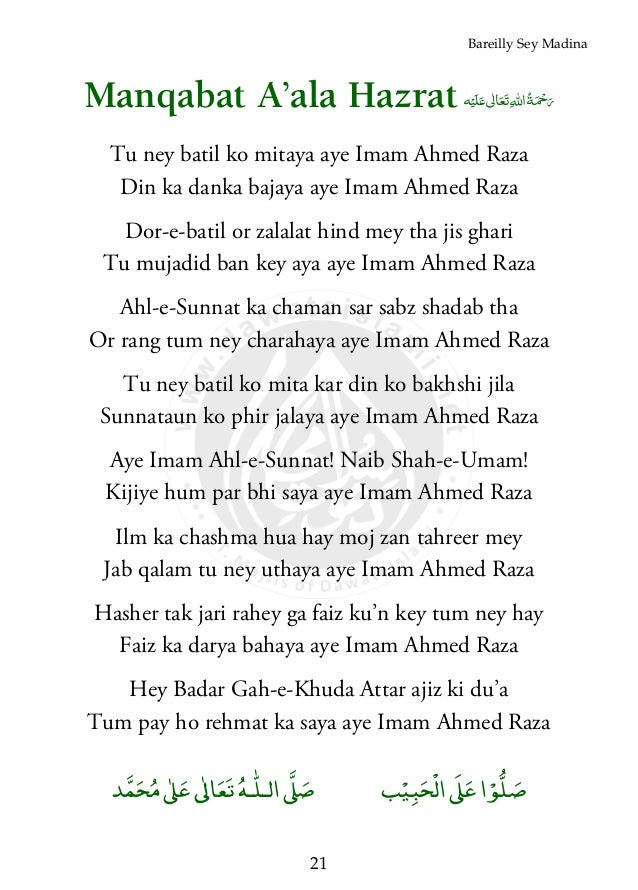 Bareilly Sey Madina
Manqabat A’ala Hazrat رَحْمَةُ اللهِ تَعَالٰى عَلَيْهِ
Tu ney batil ko mitaya aye Imam Ahmed Raza
Din ka danka bajaya aye Imam Ahmed Raza
Dor-e-batil or zalalat hind mey tha jis ghari
Tu mujadid ban key aya aye Imam Ahmed Raza
Ahl-e-Sunnat ka chaman sar sabz shadab tha
Or rang tum ney charahaya aye Imam Ahmed Raza
Tu ney batil ko mita kar din ko bakhshi jila
Sunnataun ko phir jalaya aye Imam Ahmed Raza
Aye Imam Ahl-e-Sunnat! Naib Shah-e-Umam!
Kijiye hum par bhi saya aye Imam Ahmed Raza
Ilm ka chashma hua hay moj zan tahreer mey
Jab qalam tu ney uthaya aye Imam Ahmed Raza
Hasher tak jari rahey ga faiz ku’n key tum ney hay
Faiz ka darya bahaya aye Imam Ahmed Raza
Hey Badar Gah-e-Khuda Attar ajiz ki du’a
Tum pay ho rehmat ka saya aye Imam Ahmed Raza
صَلُّوْا عَلَى الْحَبِيْب صَلَّى اللّٰهُ تَعَالٰى عَلٰى مُحَمَّد
21
www.dawateislami.net